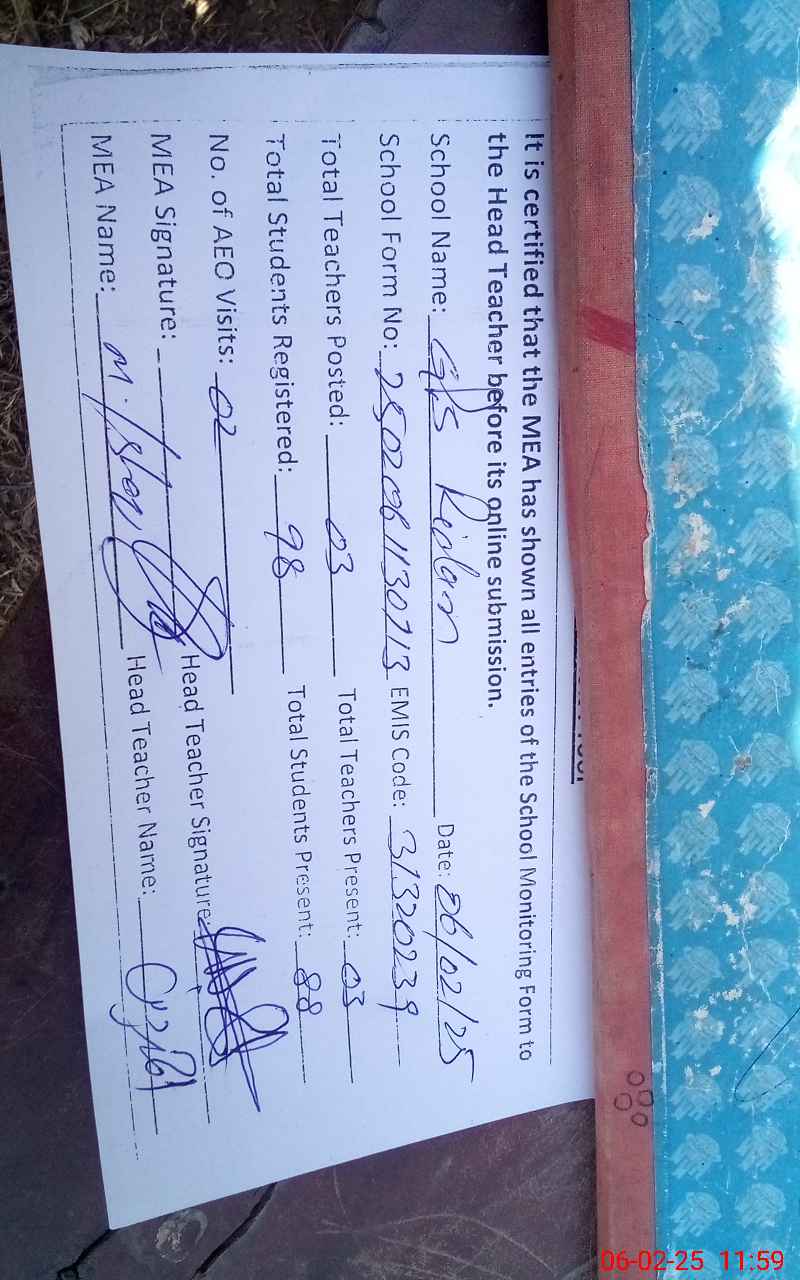 It is certified that the MEA has shown all entries of the School Monitoring Form to
the Head Teacher before its online submission.
School Name: GPS Date: 06/02/25
School Form No: 2502061130713 EMIS Code: 31320239
Total Teachers Posted: 03 Total Teachers Present: 03
Total Students Registered: 98 Total Students Present: 88
No. of AEO Visits: 02
MEA Signature: Head Teacher Signature:
MEA Name: Head Teacher Name:
06-02-25 11:59